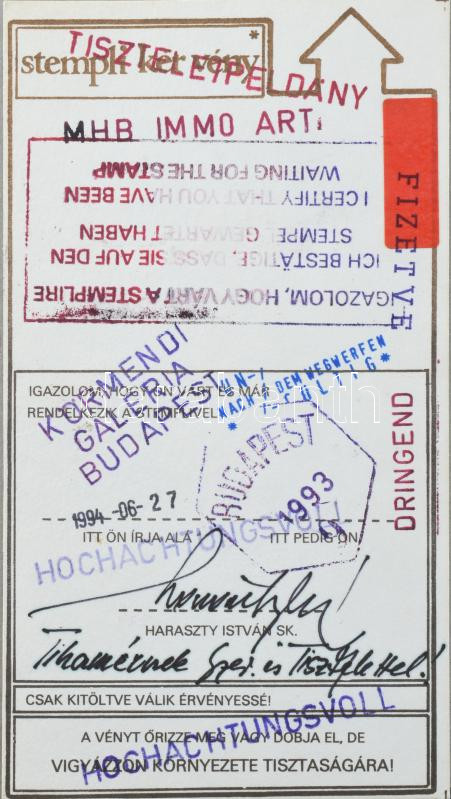 stempli ker vény*
TISZTELETPÉLDÁNY
MHB IMMO ART.
FIZETVE
IGAZOLOM, HOGY VÁRT A STEMPLIRE
ICH BESTÄTIGE, DASS SIE AUF DEN
STEMPEL GEWARTET HABEN
I CERTIFY THAT YOU HAVE BEEN
WAITING FOR THE STAMP
KÖRMENDI
GALÉRIA
BUDAPEST
* UN-/
NACH DEM WEGWERFEN
* GÜLTIG *
IGAZOLOM, HOGY ÖN VÁRT ÉS MÁR
RENDELKEZIK A STEMPLIVEL
BUDAPEST
1993
DRINGEND
1994-06-27
ITT ÖN ÍRJA ALÁ
ITT PEDIG ÖN
HOCHACHTUNGSVOLL
HARASZTY ISTVÁN SK.
Tihamérnek Szer. és Tisztelettel!
CSAK KITÖLTVE VÁLIK ÉRVÉNYESSÉ!
HOCHACHTUNGSVOLL
A VÉNYT ŐRIZZE MEG VAGY DOBJA EL, DE
VIGYÁZZON KÖRNYEZETE TISZTASÁGÁRA!